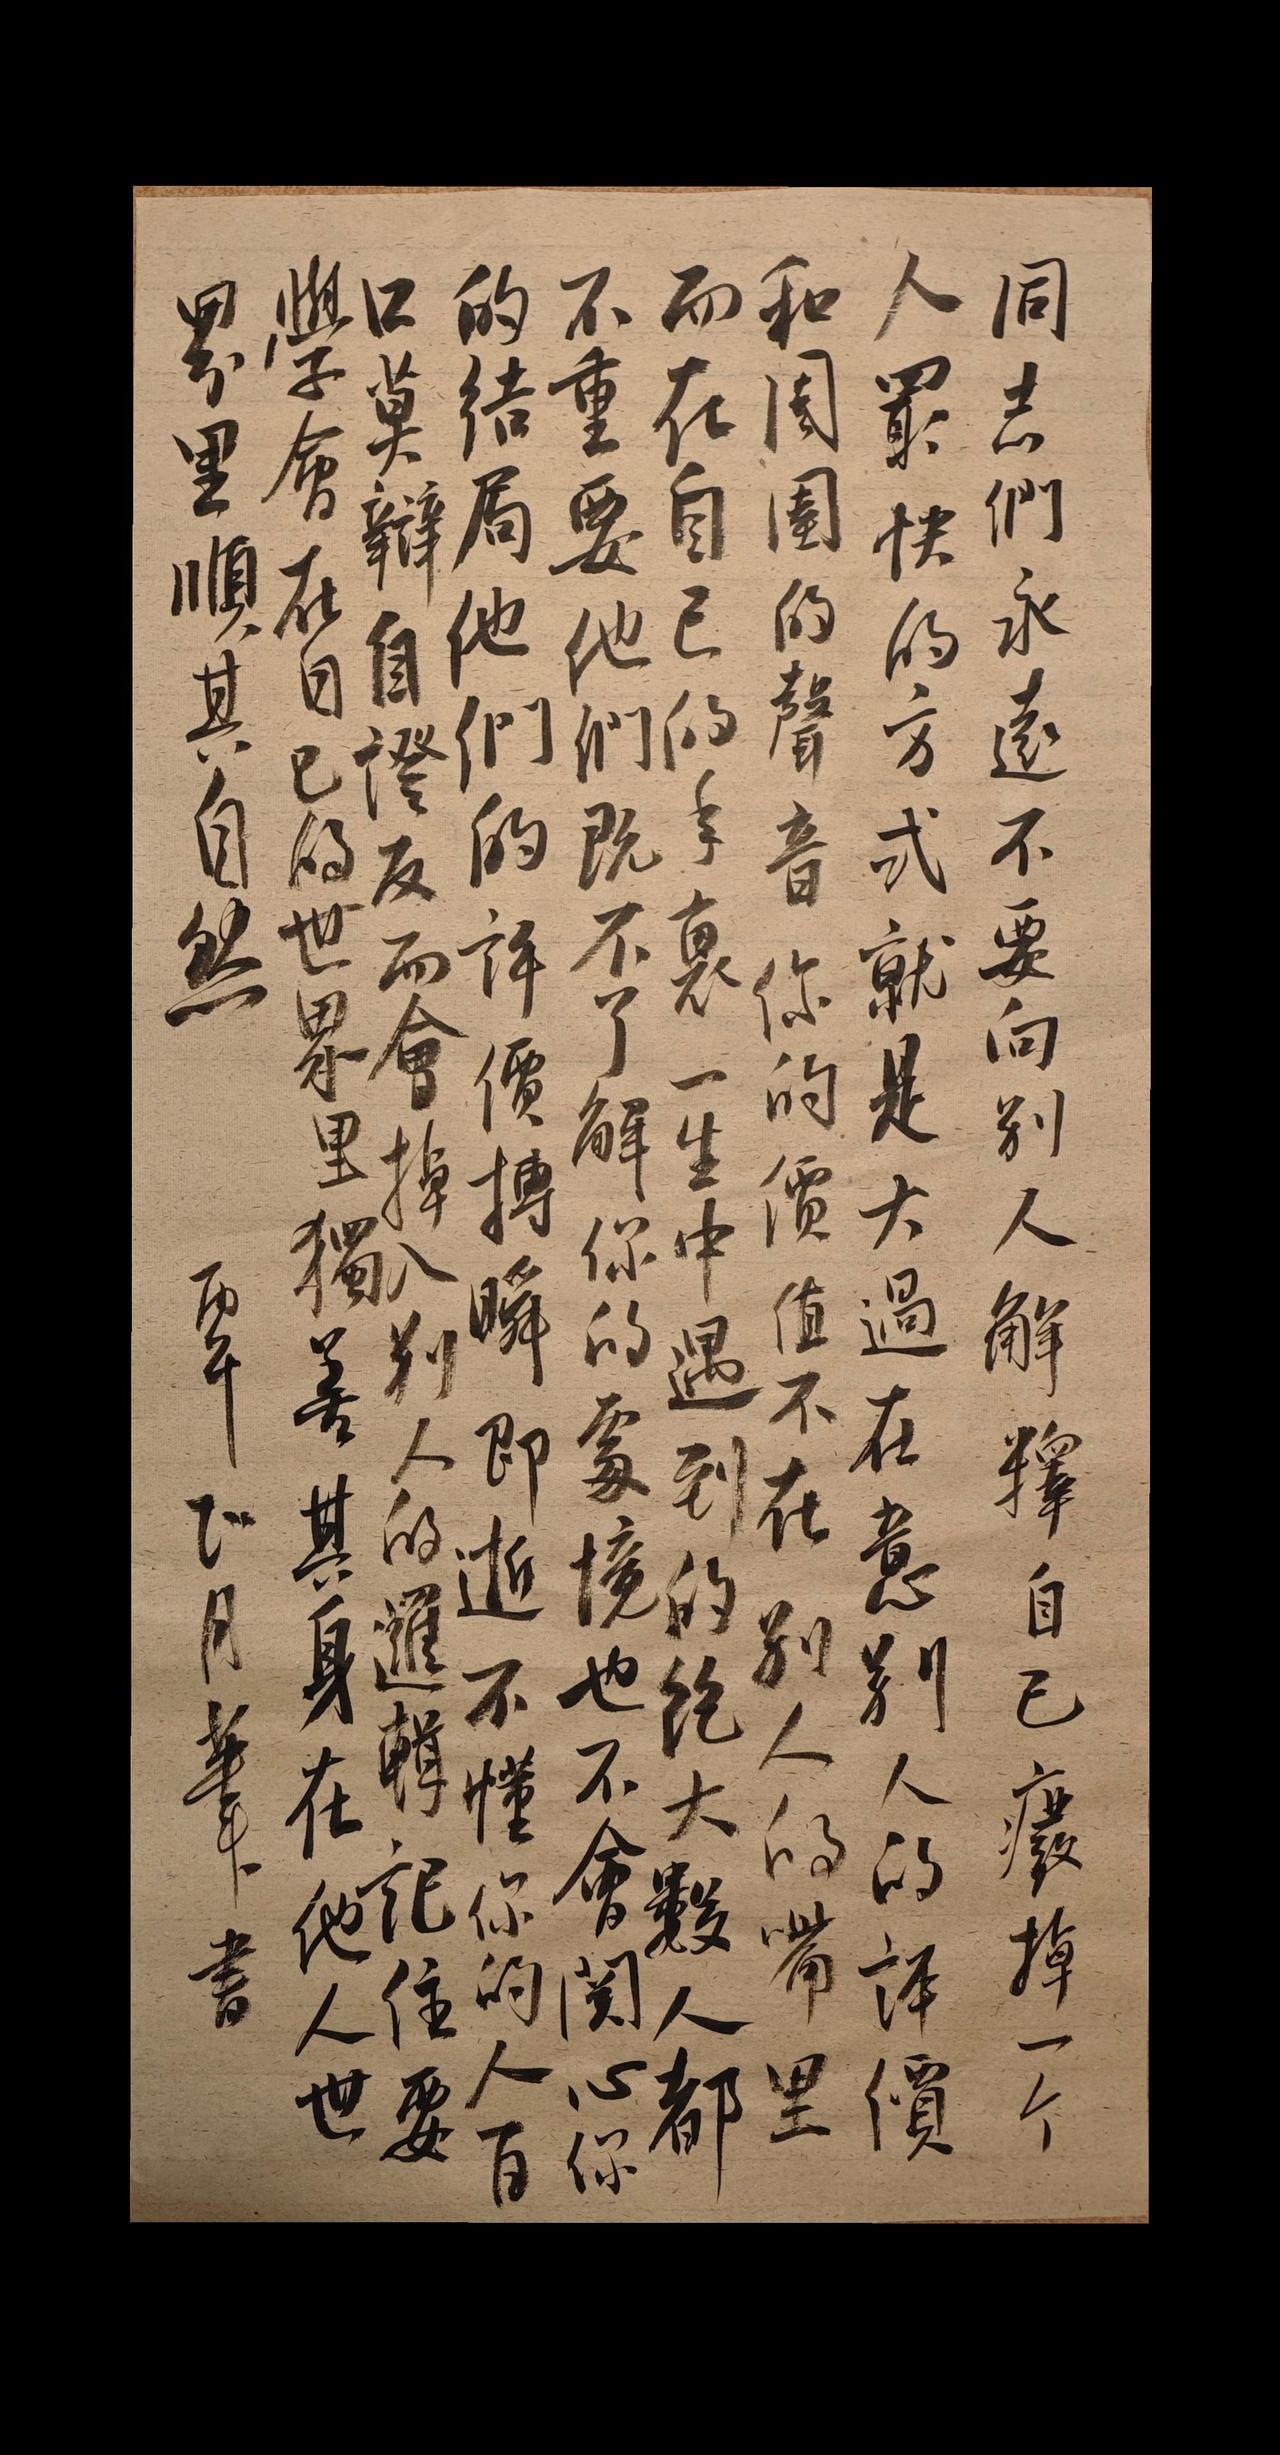 同志們永遠不要向别人解釋自己廢掉一个
人最快的方式就是大過在意别人的評價
和周圍的聲音你的價值不在别人的嘴里
而在自己的手裏一生中遇到的絶大數人都
不重要他們既不了解你的處境也不會関心你
的結局他們的評價摶瞬即逝不懂你的人百
口莫辯自證反而會掉入别人的邏輯記住要
學會在自己的世界里獨善其身在他人世
界里順其自然
月筆書